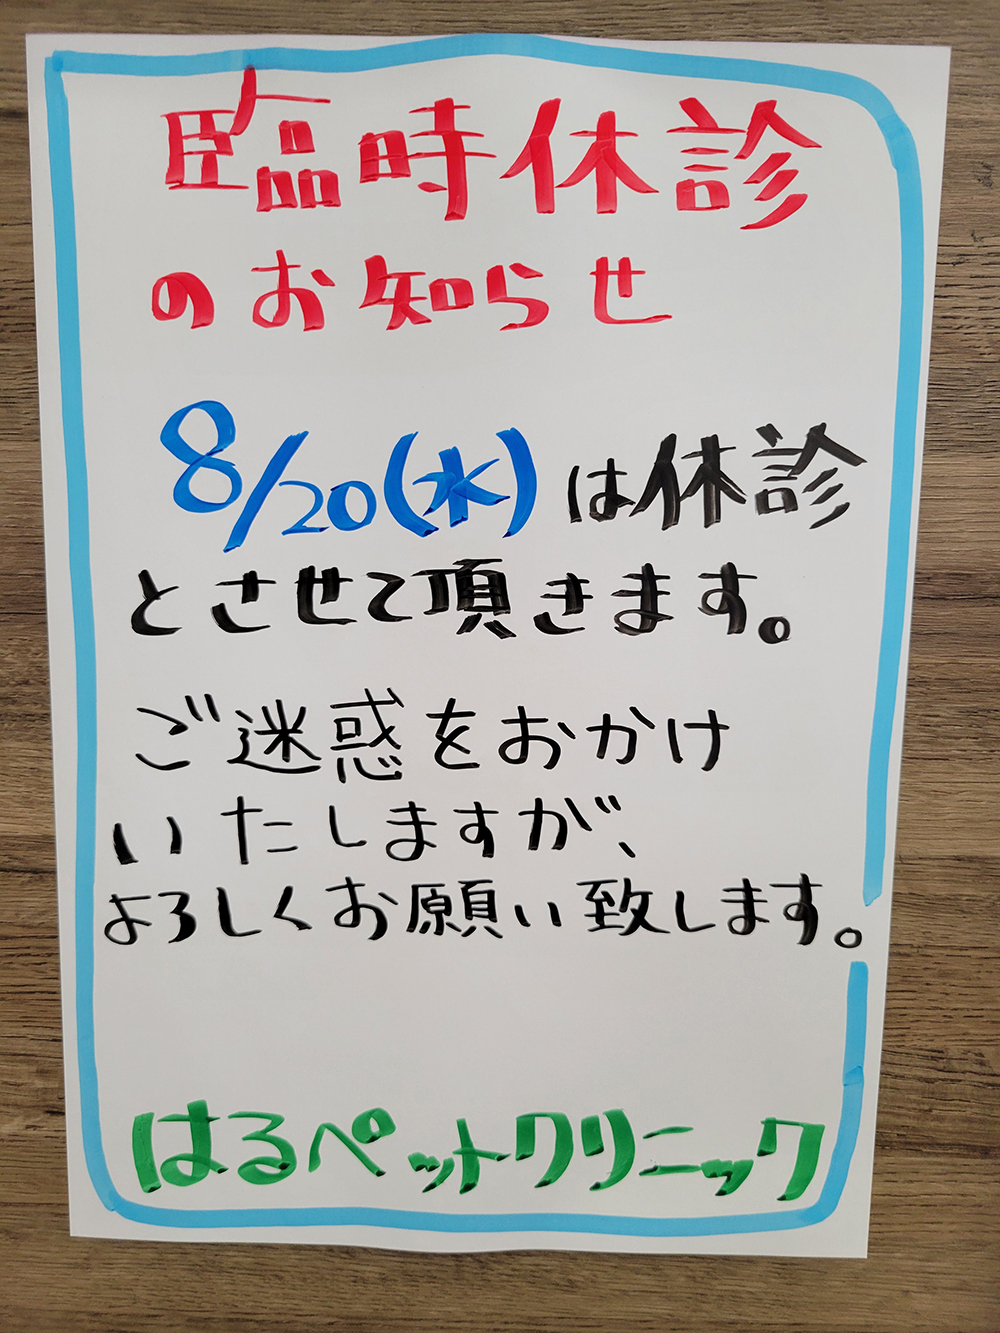 臨時休診
のお知らせ
8/20(水)は休診
とさせて頂きます。
ご迷惑をおかけ
いたしますが、
よろしくお願い致します。
はるペットクリニック